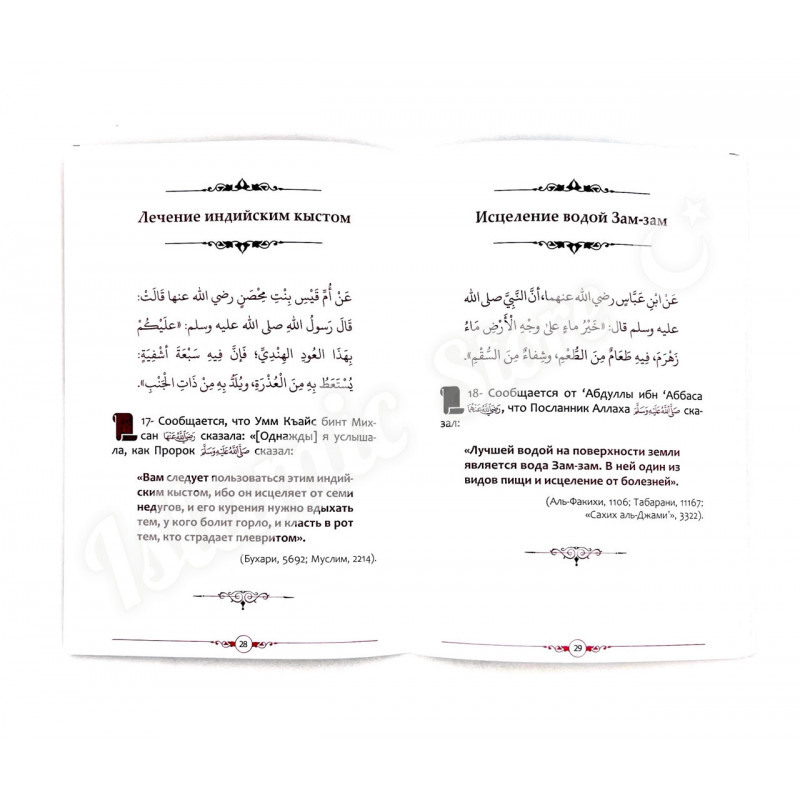 Лечение индийским кыстом
عَنْ أُمِّ قَيْسٍ بِنْتِ مِحْصَنٍ رضي الله عنها قَالَتْ:
قَالَ رَسُولُ اللهِ صلى الله عليه وسلم: «عَلَيْكُمْ
بِهَذَا العُودِ الهِنْدِيِّ؛ فَإِنَّ فِيهِ سَبْعَةَ أَشْفِيَةٍ:
يُسْتَعَطُ بِهِ مِنَ العُذْرَةِ، وَيُلَدُّ بِهِ مِنْ ذَاتِ الجَنْبِ».
17- Сообщается, что Умм Къайс бинт Мих-
сан رضي الله عنها сказала: «[Однажды] я услыша-
ла, как Пророк ﷺ сказал:
«Вам следует пользоваться этим индий-
ским кыстом, ибо он исцеляет от семи
недугов, и его курения нужно вдыхать
тем, у кого болит горло, и класть в рот
тем, кто страдает плевритом».
(Бухари, 5692; Муслим, 2214).
28
Исцеление водой Зам-зам
عَنِ ابْنِ عَبَّاسٍ رضي الله عنهما، أَنَّ النَّبِيَّ صلى الله
عليه وسلم قال: «خَيْرُ مَاءٍ عَلَى وَجْهِ الْأَرْضِ مَاءُ
زَمْزَمَ، فِيهِ طَعَامٌ مِنَ الطُّعْمِ، وَشِفَاءٌ مِنَ السُّقْمِ».
18- Сообщается от ‘Абдуллы ибн ‘Аббаса
رضي الله عنهما, что Посланник Аллаха ﷺ ска-
зал:
«Лучшей водой на поверхности земли
является вода Зам-зам. В ней один из
видов пищи и исцеление от болезней».
(Аль-Факихи, 1106; Табарани, 11167;
«Сахих аль-Джами’», 3322).
29
Islamic Store